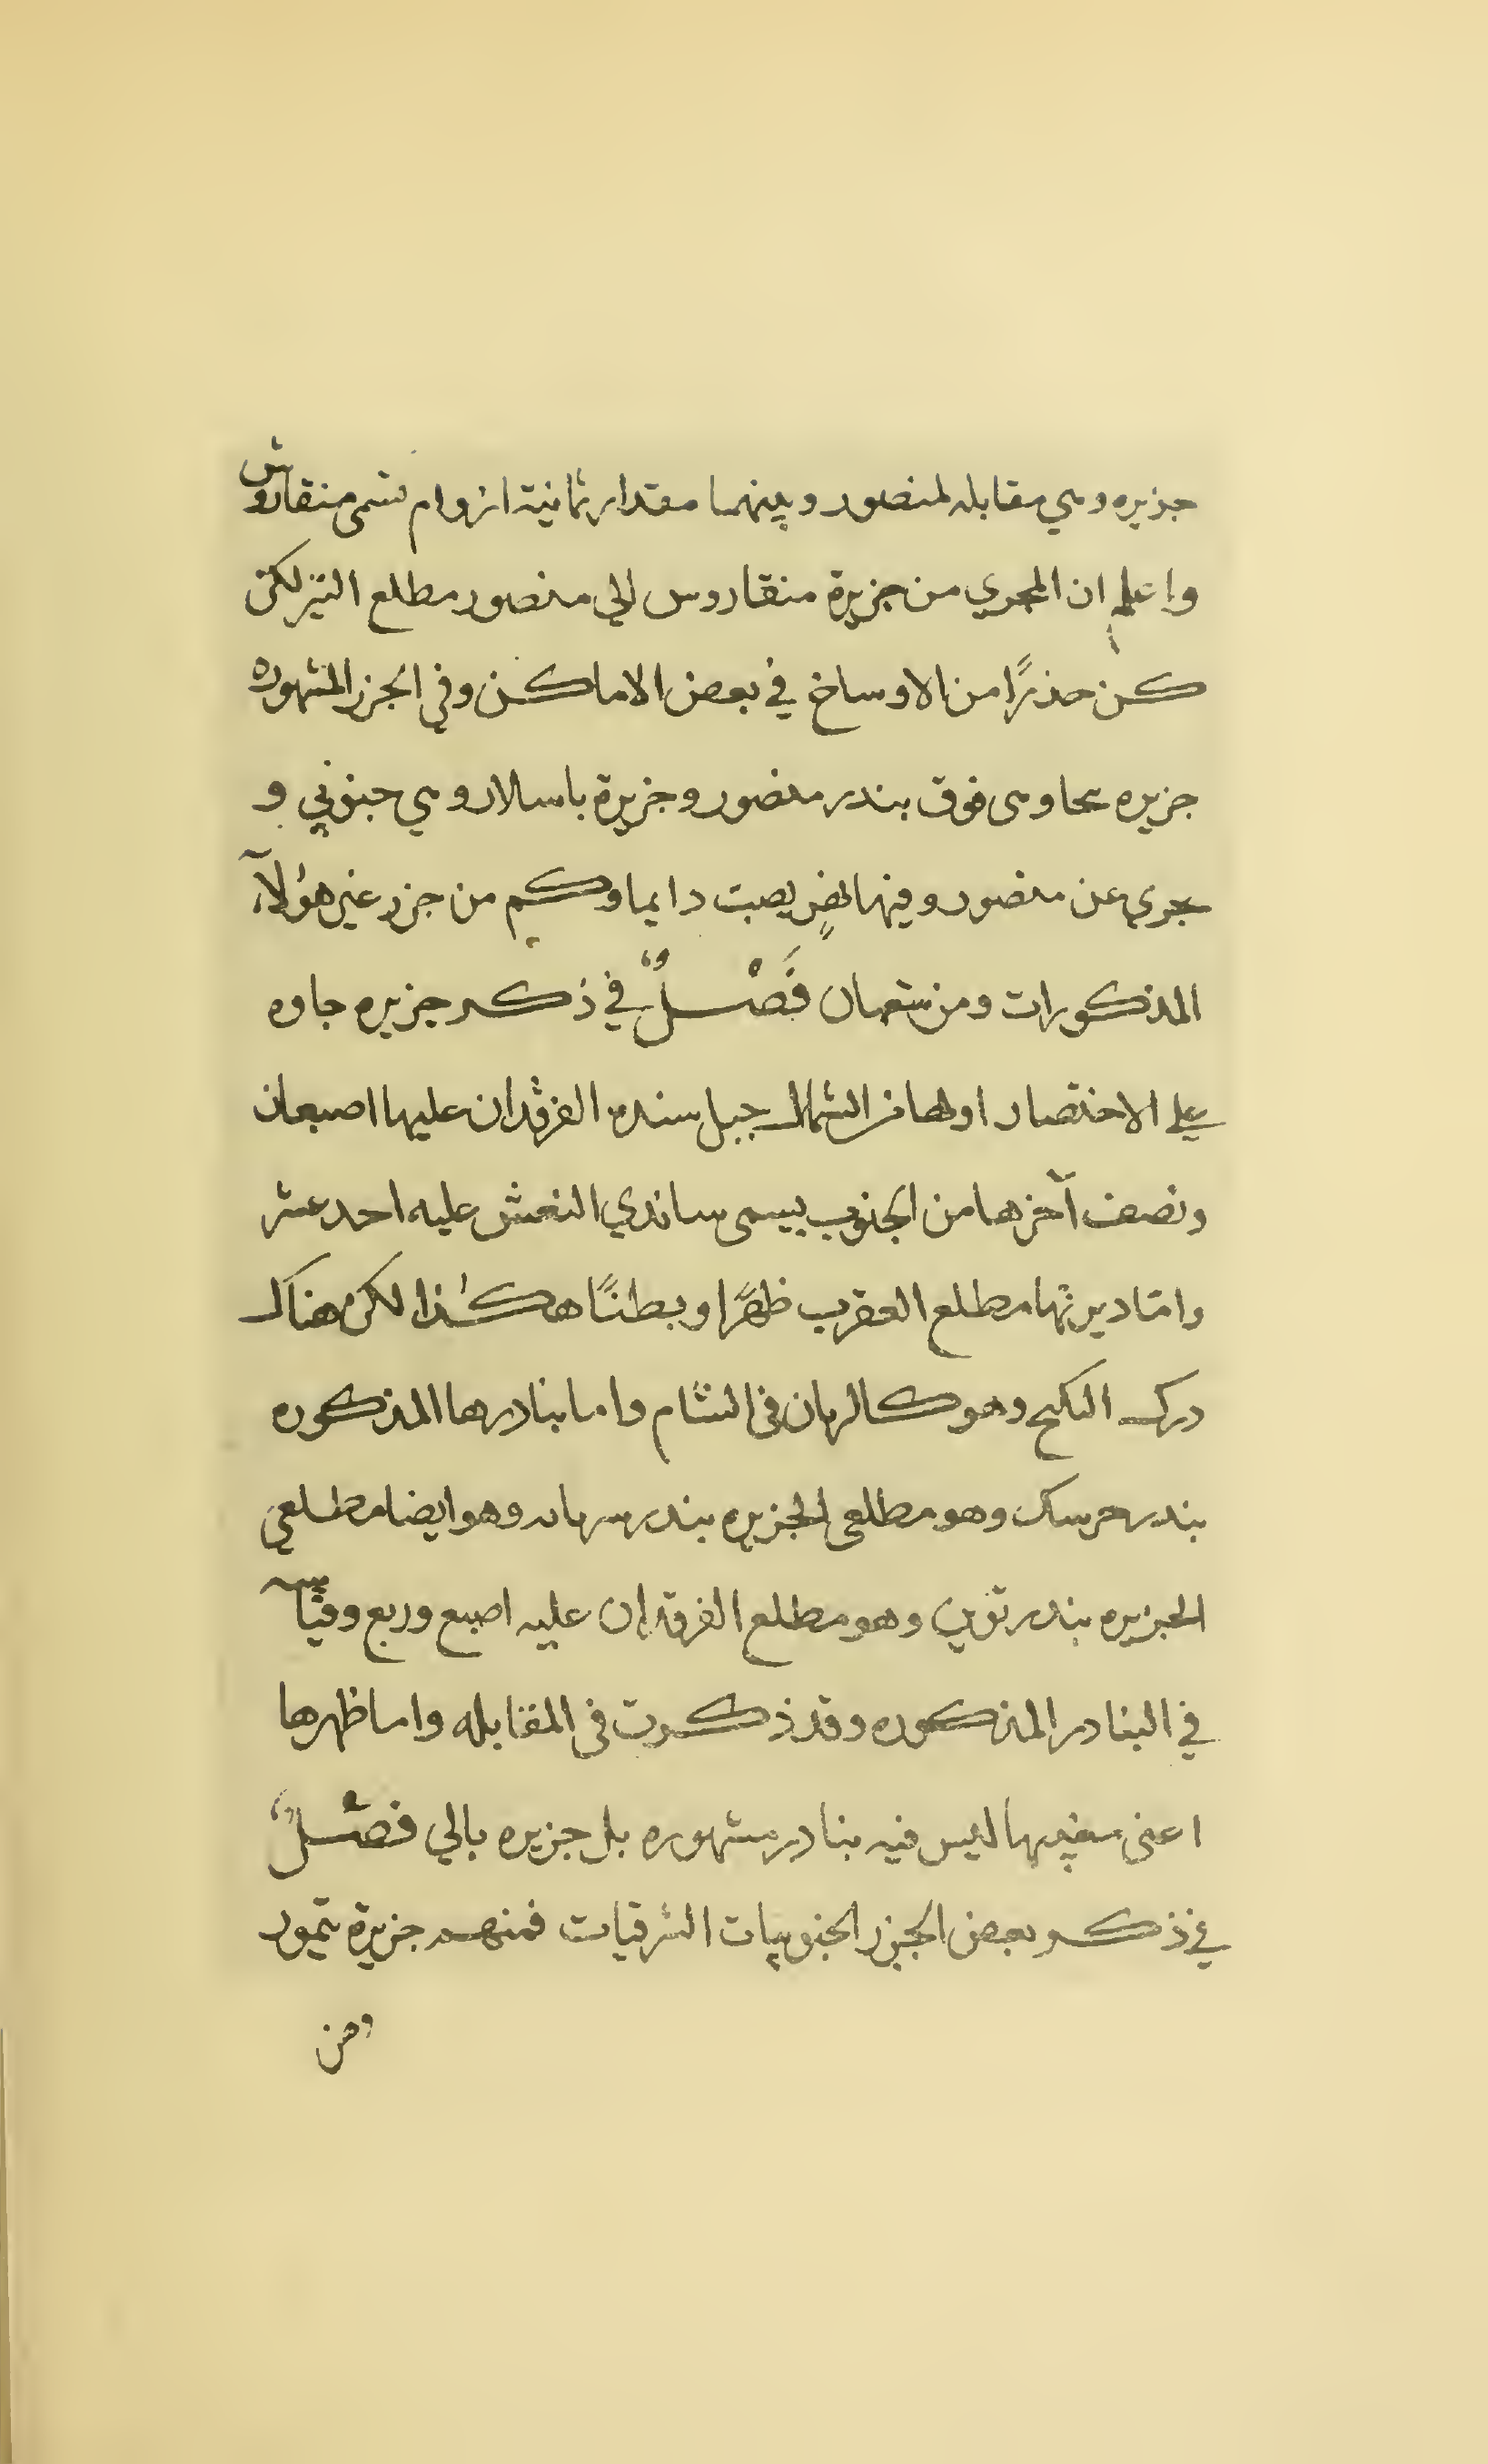 جزيره وهي مقابله لمنصور وبينهما مقدار ثمانية ازوام تسمى منقاروس
واعلم ان المجري من جزيرة منقاروس الي منصور مطلع التير لكن
كن حذرًا من الاوساخ في بعض الاماكن وفي الجزر المشهوره
جزيره وهى فوق بندر منصور وجزيرة باسالار وهي جنوبي و
عن منصور وفيها يصبت دايما وكم من جزر غير هؤلآء
المذكورات ومن فَصْلٌ في ذكر جزيره جاوه
علي الاختصار اولها من الشمال جبل سنده الفرقدان عليها اصبعان
ونصف آخرها من الجنوب يسمى ساندي النعش عليه احد عشر
وامّا ديرتها مطلع العقرب ظهرًا وبطنًا هكذا لكن هناك
درك النكيح وهو كالرمان في الشام واما بنادرها المذكوره
بندر وهو مطلعى الجزيره بندر وهو ايضا مطلعي
الجزيره بندر توبن وهو مطلع الفرقدان عليه اصبع وربع وقيآسه
في البنادر المذكوره وقد ذكرت في المقابله واما ظهرها
اعنى مغيبها ليس فيه بنادر مشهوره بل جزيره بالي فصْلٌ
في ذكر بعض الجزر الجنوبيات الشرقيات فمنهم جزيرة تيمور
ومن